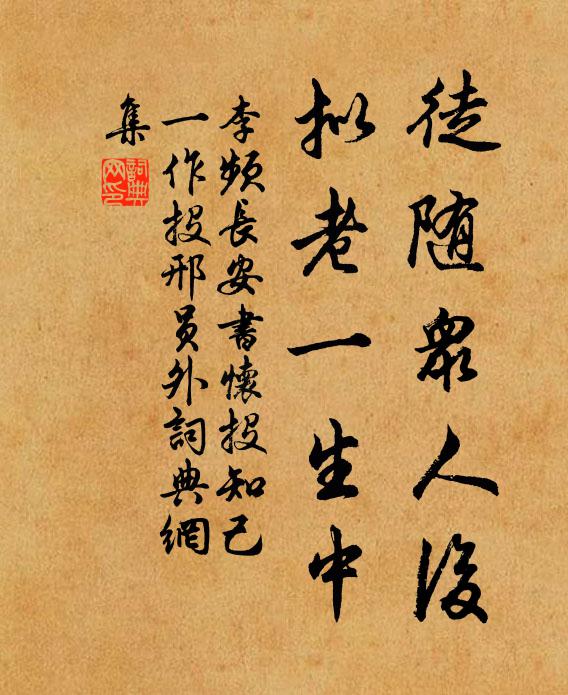 徒随眾人後
拟老一生中
李频長安書懷投知己
一作投邢員外詞典網
集
詞典網印